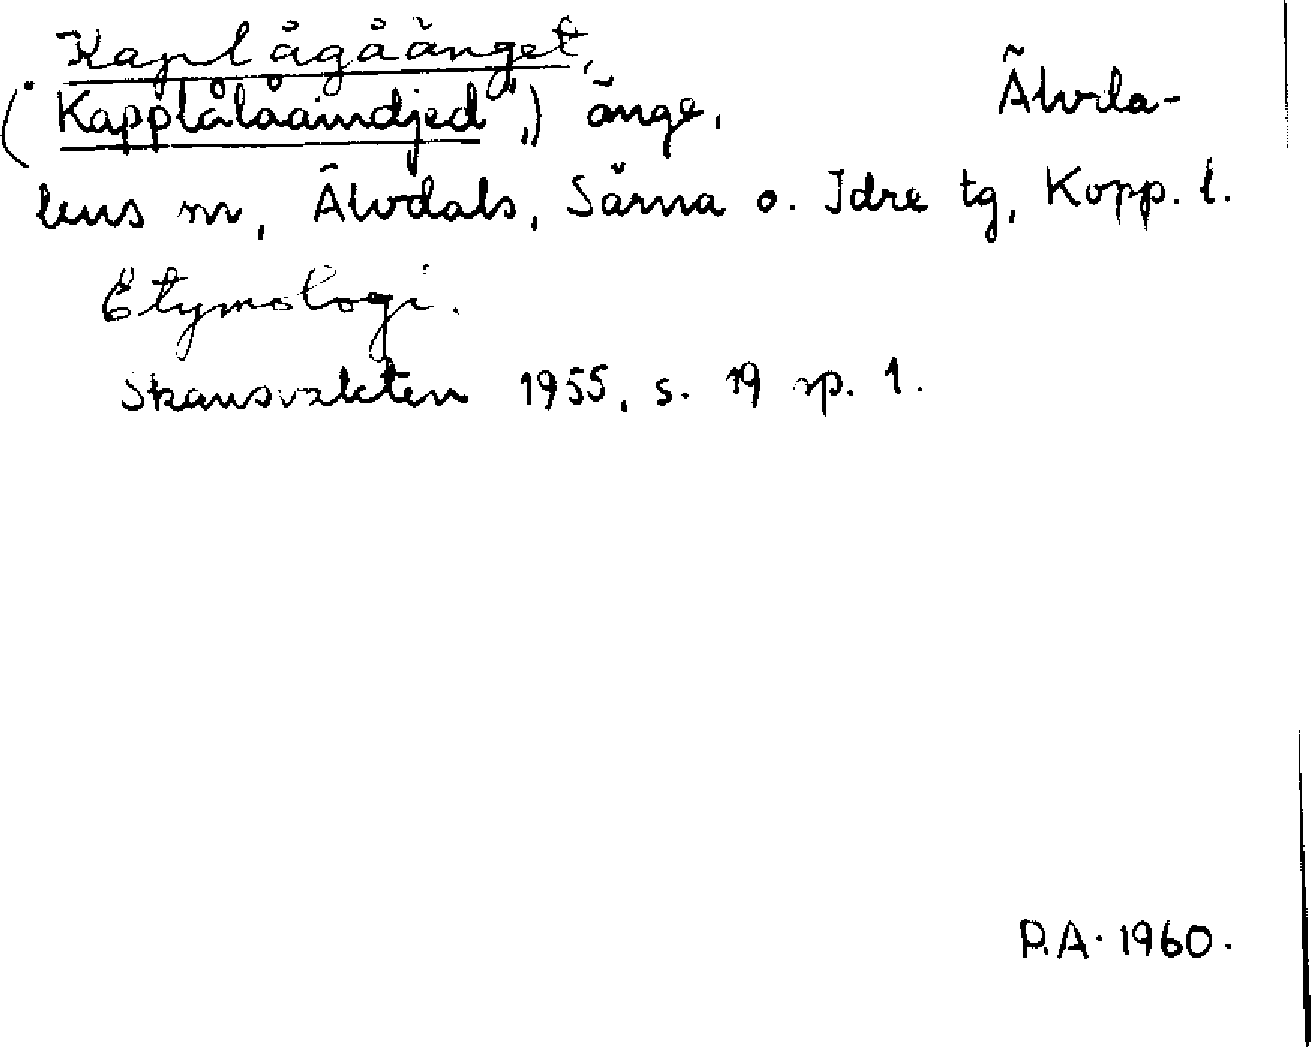 Kaplågåänget,
("Kapplålåaindjed",) änge, Älvda-
lens sn, Älvdals, Särna o. Idre tg, Kopp. l.
Etymologi.
Skansvakten 1955, s. 19 sp. 1.
P.A. 1960.